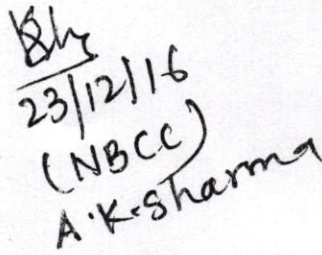 23/12/16
(NBCC)
A.K.Sharma